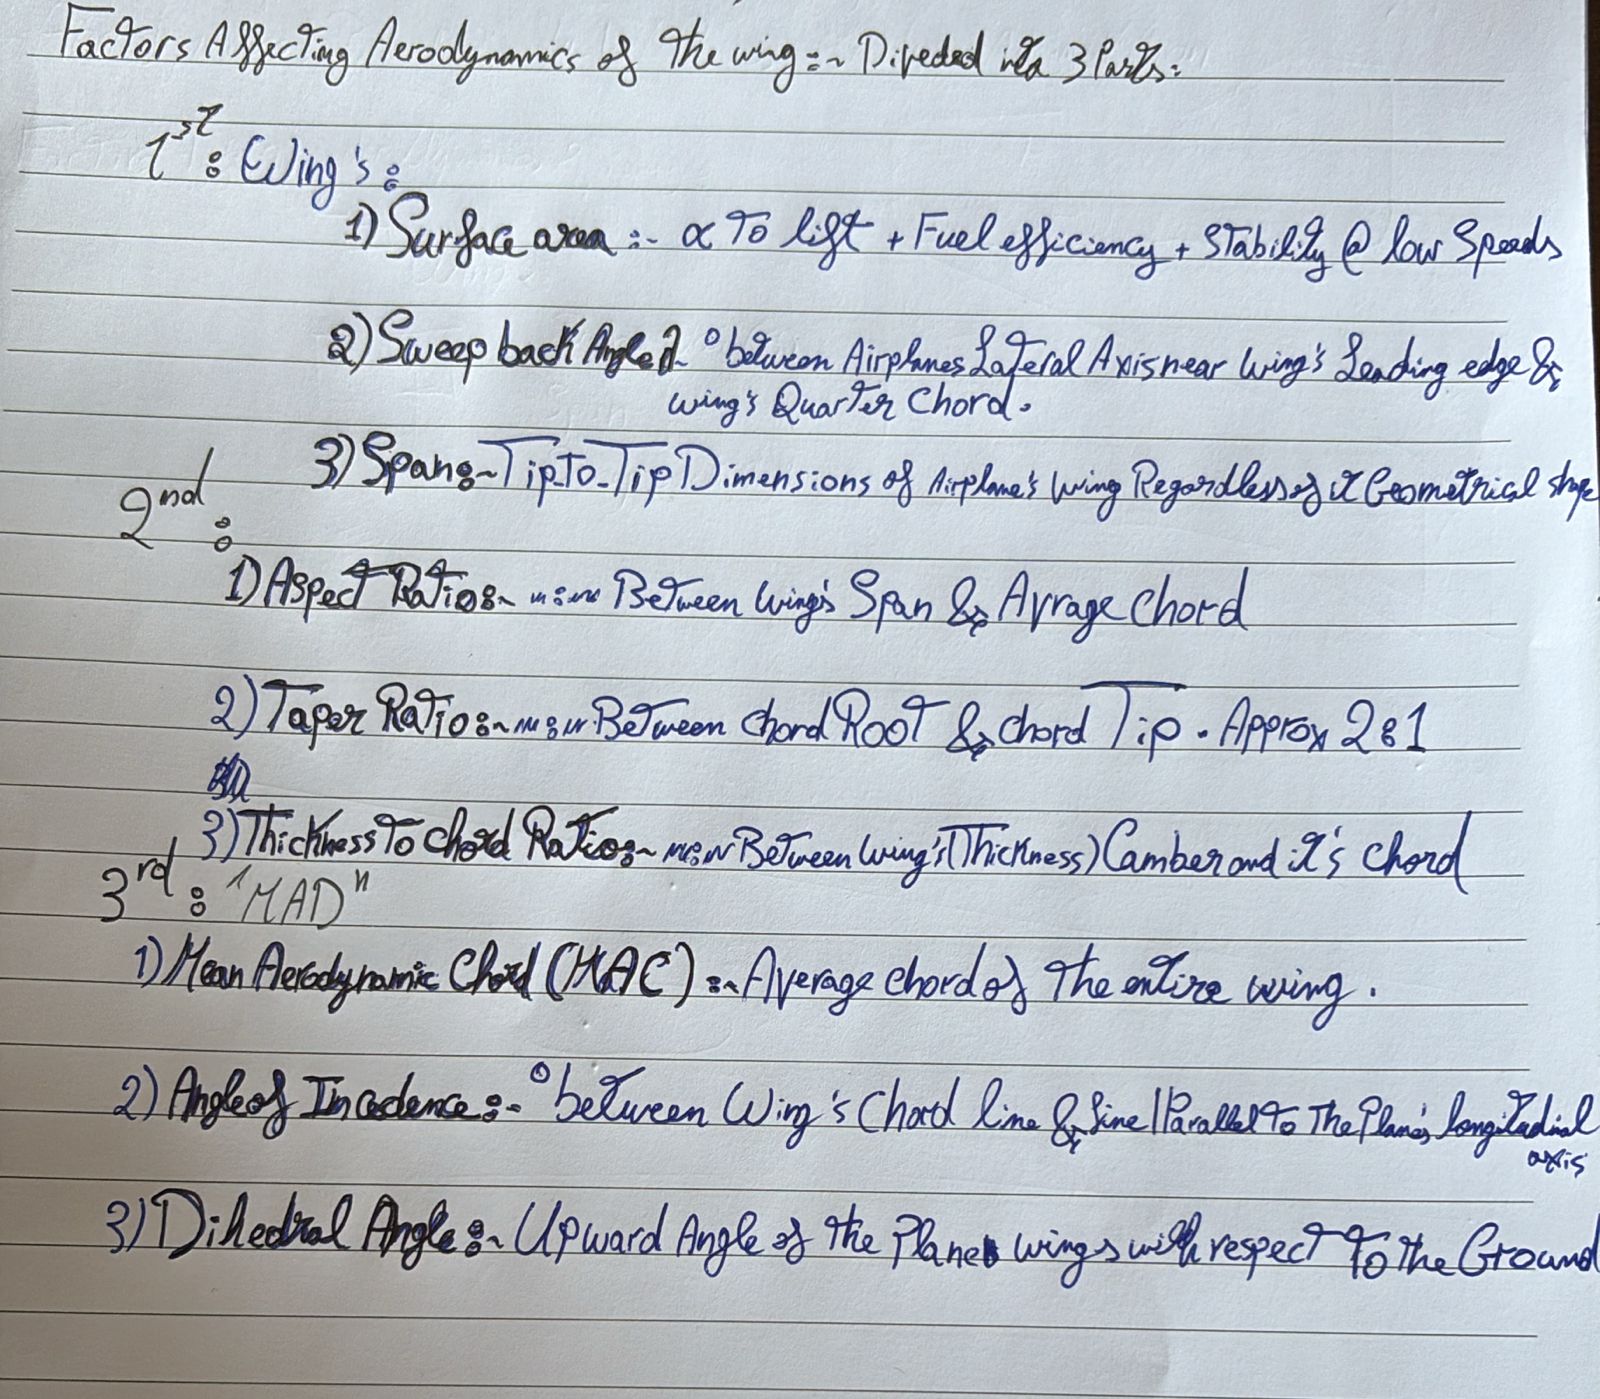 Factors Affecting Aerodynamics of the wing:~ Diveded into 3 Parts:
1st: Wing's:
1) Surface area :~ ∝ To lift + Fuel efficiency + Stability @ low Speeds
2) Sweep back Angle:~ ° between Airplanes Lateral Axis near wing's Leading edge &
wing's Quarter Chord.
3) Span:~ Tip_To_Tip Dimensions of Airplane's wing Regardless of it Geometrical shape
2nd:
1) Aspect Ratio:~ Between wing's Span & Avrage Chord
2) Taper Ratio:~ Between chord Root & chord Tip. Approx 2:1
3) Thickness To chord Ratio:~ Between wing's (Thickness) Camber and it's chord
3rd: "MAD"
1) Mean Aerodynamic Chord (MAC) :~ Average chord of the entire wing.
2) Angle of Incedence:~ ° between Wing's Chord line & line || Parallel To The Plane's longitudinal
axis
3) Dihedral Angle:~ Upward Angle of the Plane wings with respect To the Ground